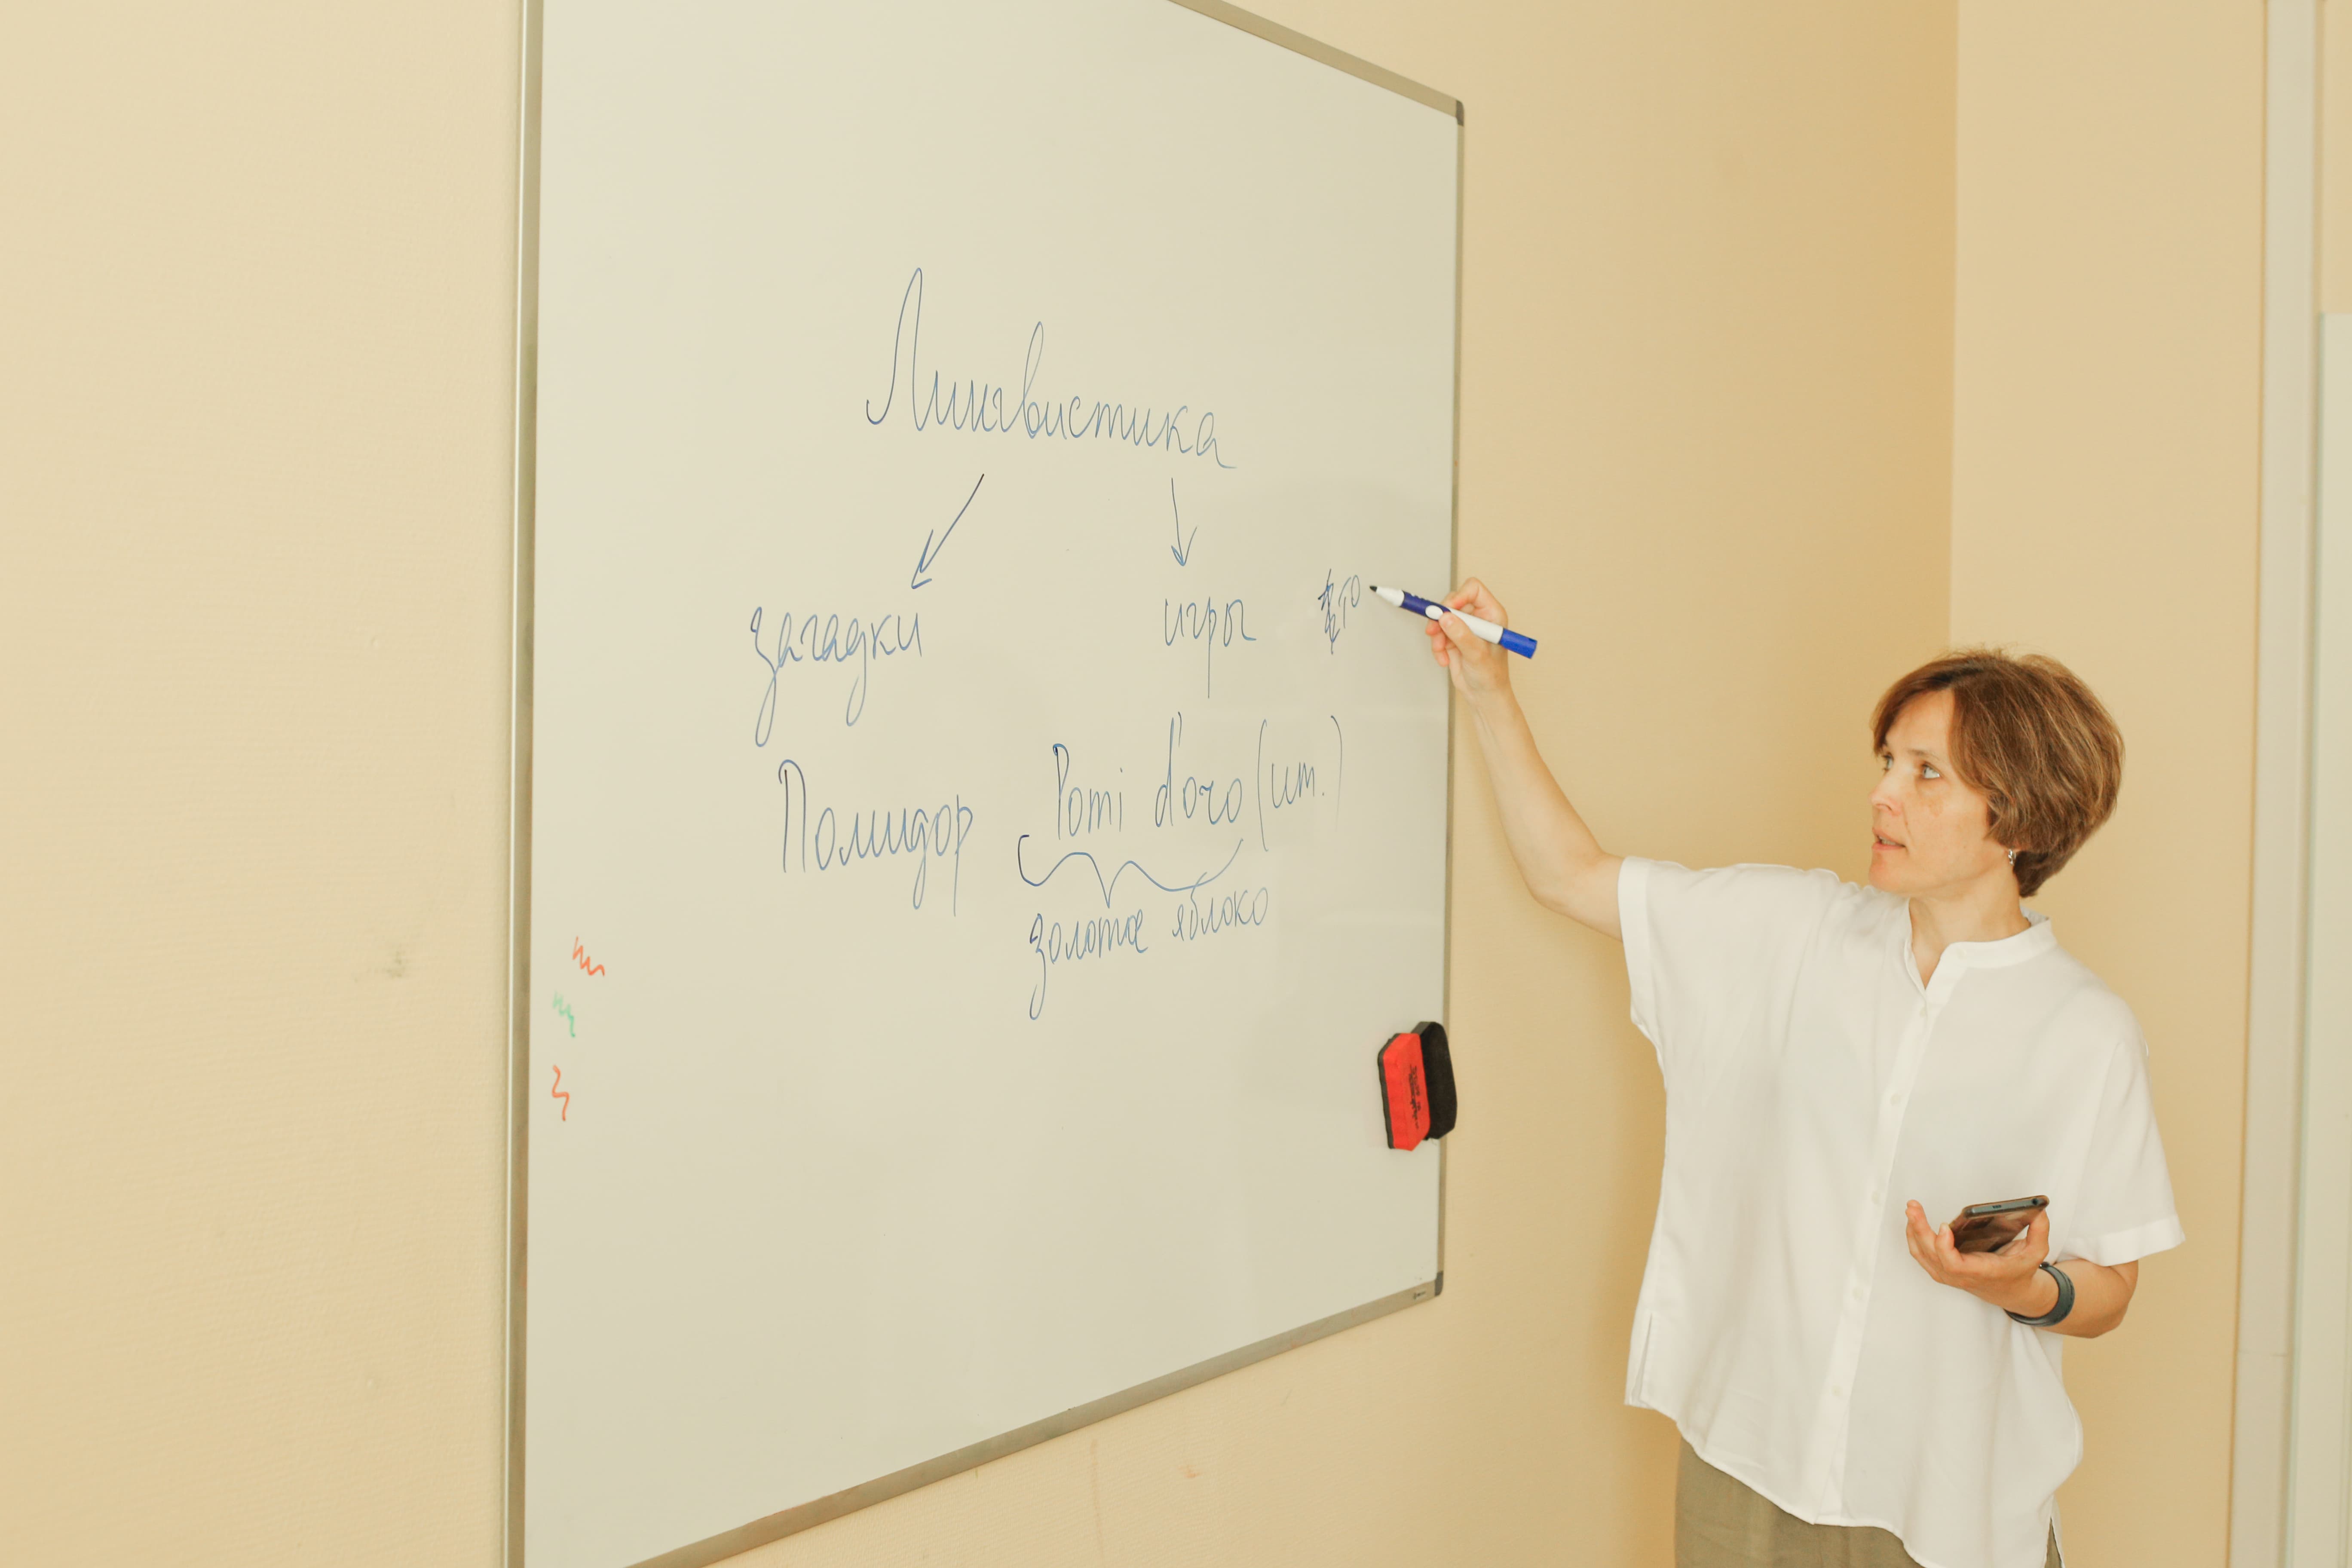 Лингвистика
загадки игры
Помидор Pomi d'oro (ит.)
золотое яблоко